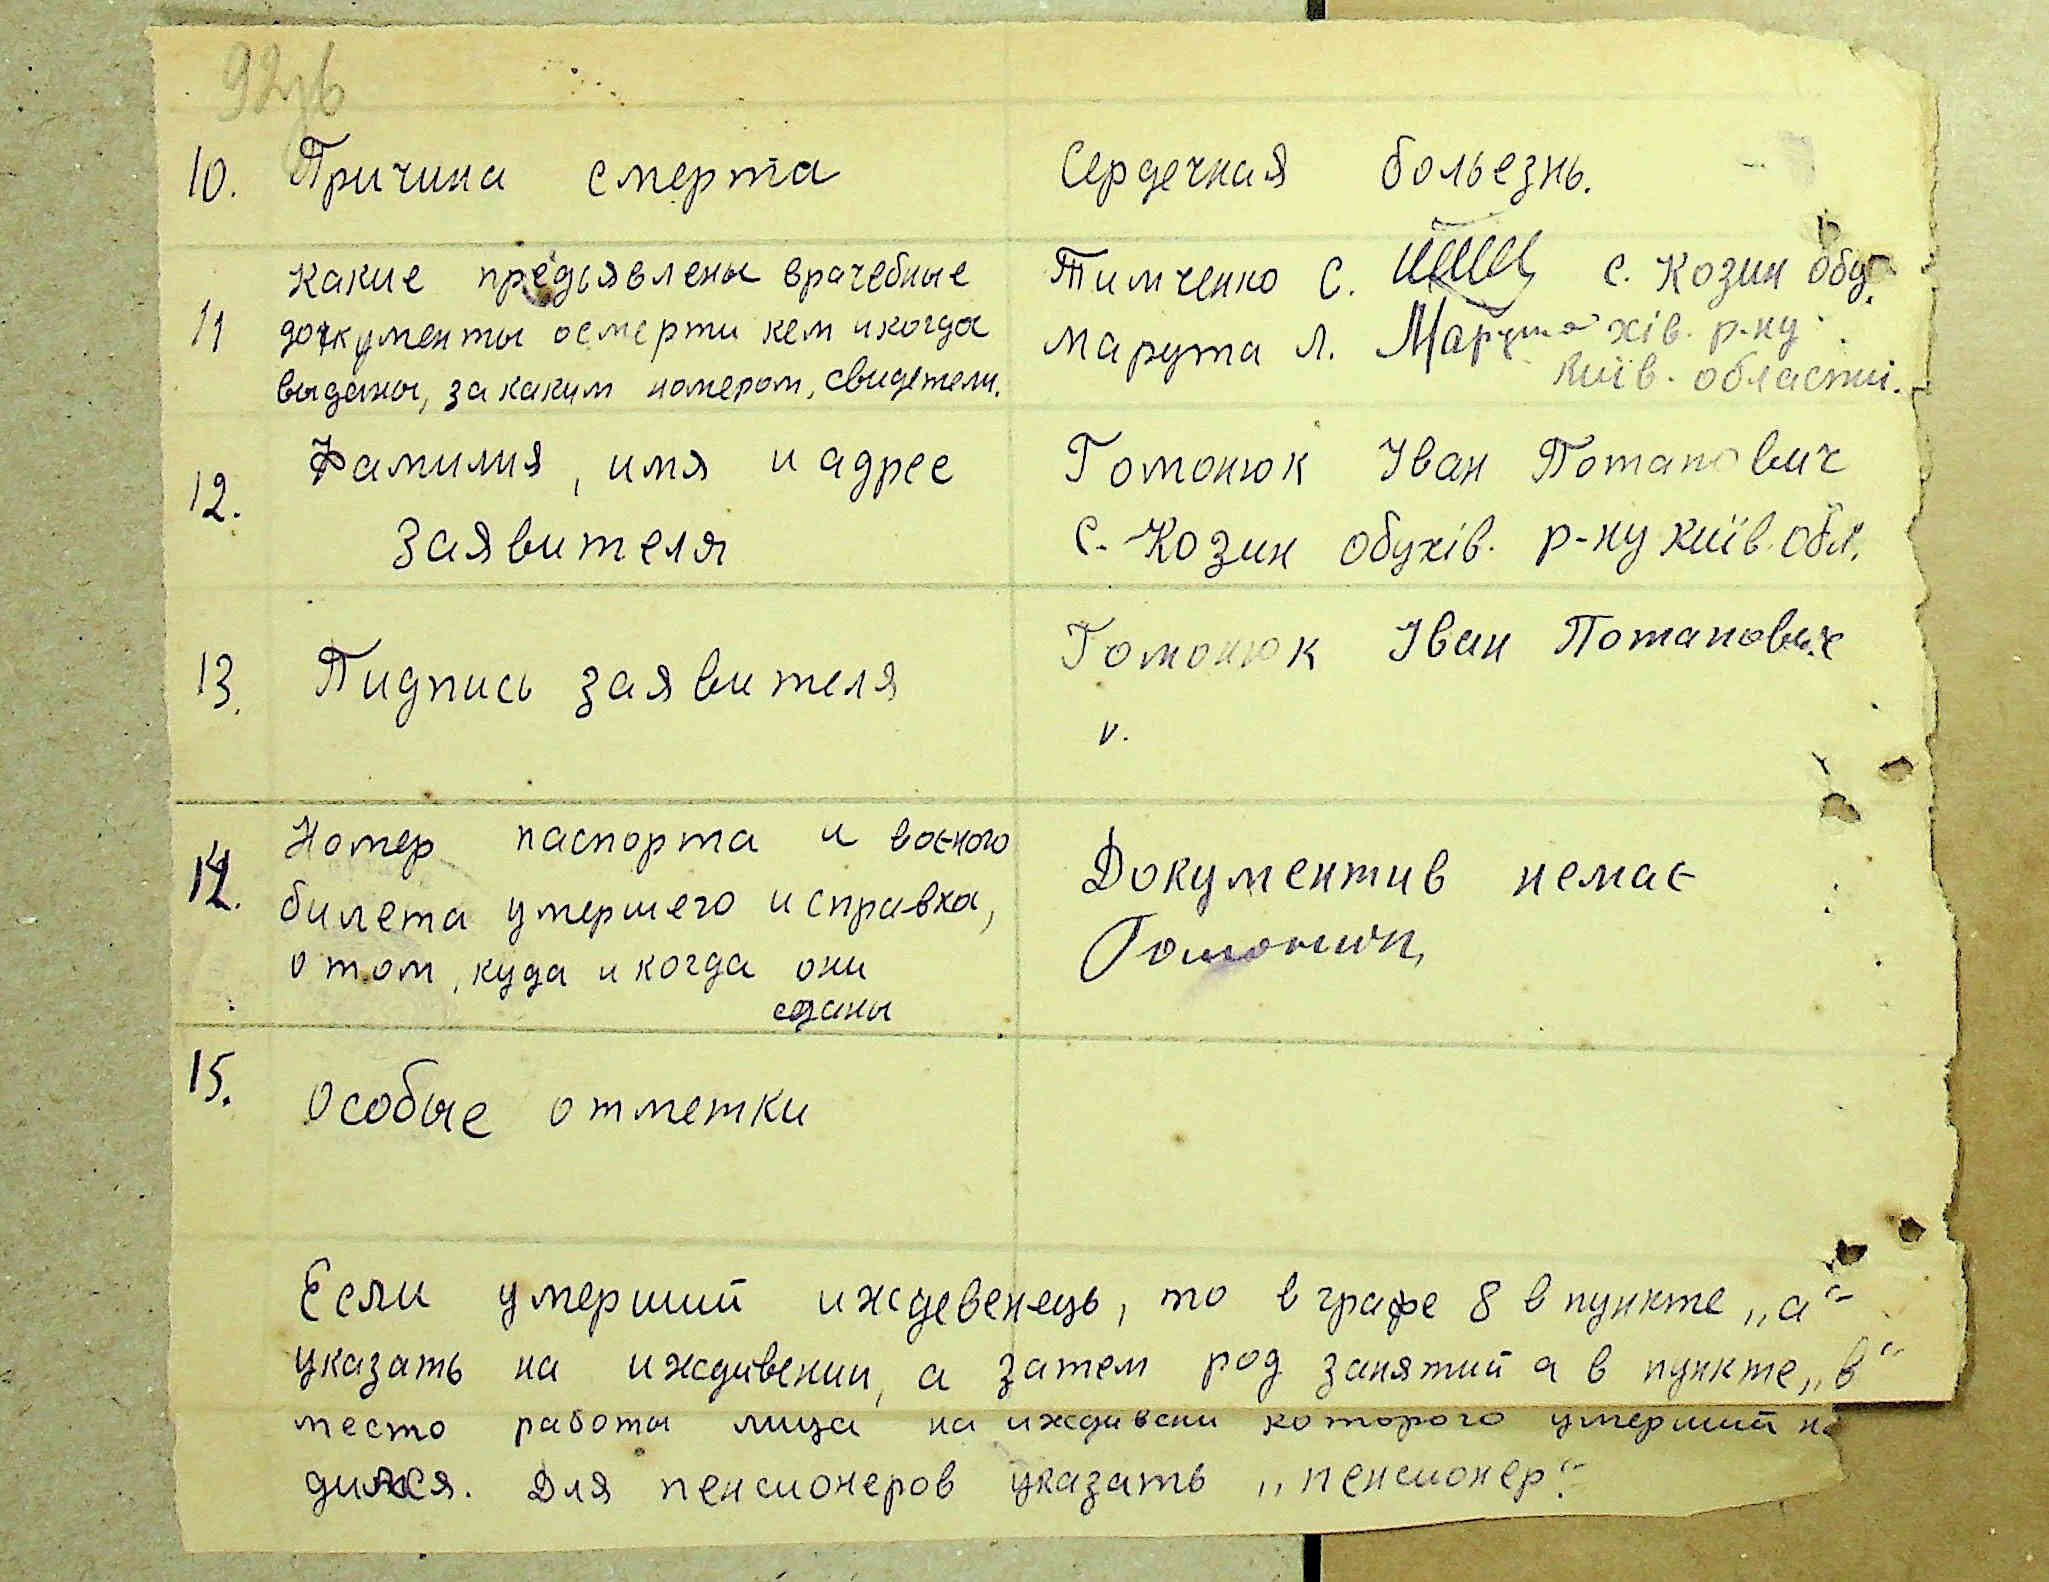 92зв
10. Причина смерта Сердечная больезнь.
Какие предьявлены врачебные Тимченко С. с. Козин Обу
11 документы осмерти кем и когда Марута Л. Марута хів. р-ну
выданы, за каким номером, свидетели. Київ. области.
Фамилия, имя и адрес Гомонюк Іван Потапович
12. Заявителя с. Козин обухів. р-ну Київ. обл.
13. Пидпись заявителя Гомонюк Іван Потапович
v.
14. Номер паспорта и воєного Документив немає
билета умершего и справка, Гомонюк,
о том, куда и когда они
сданы
15. Особые отметки
Если умерший иждевенець, то в графе 8 в пункте „а“
указать на иждивении, а затем род занятий а в пункте „в“
место работы лица на иждивени которого умерший на
дился. Для пенсионеров указать „пенсионер“.